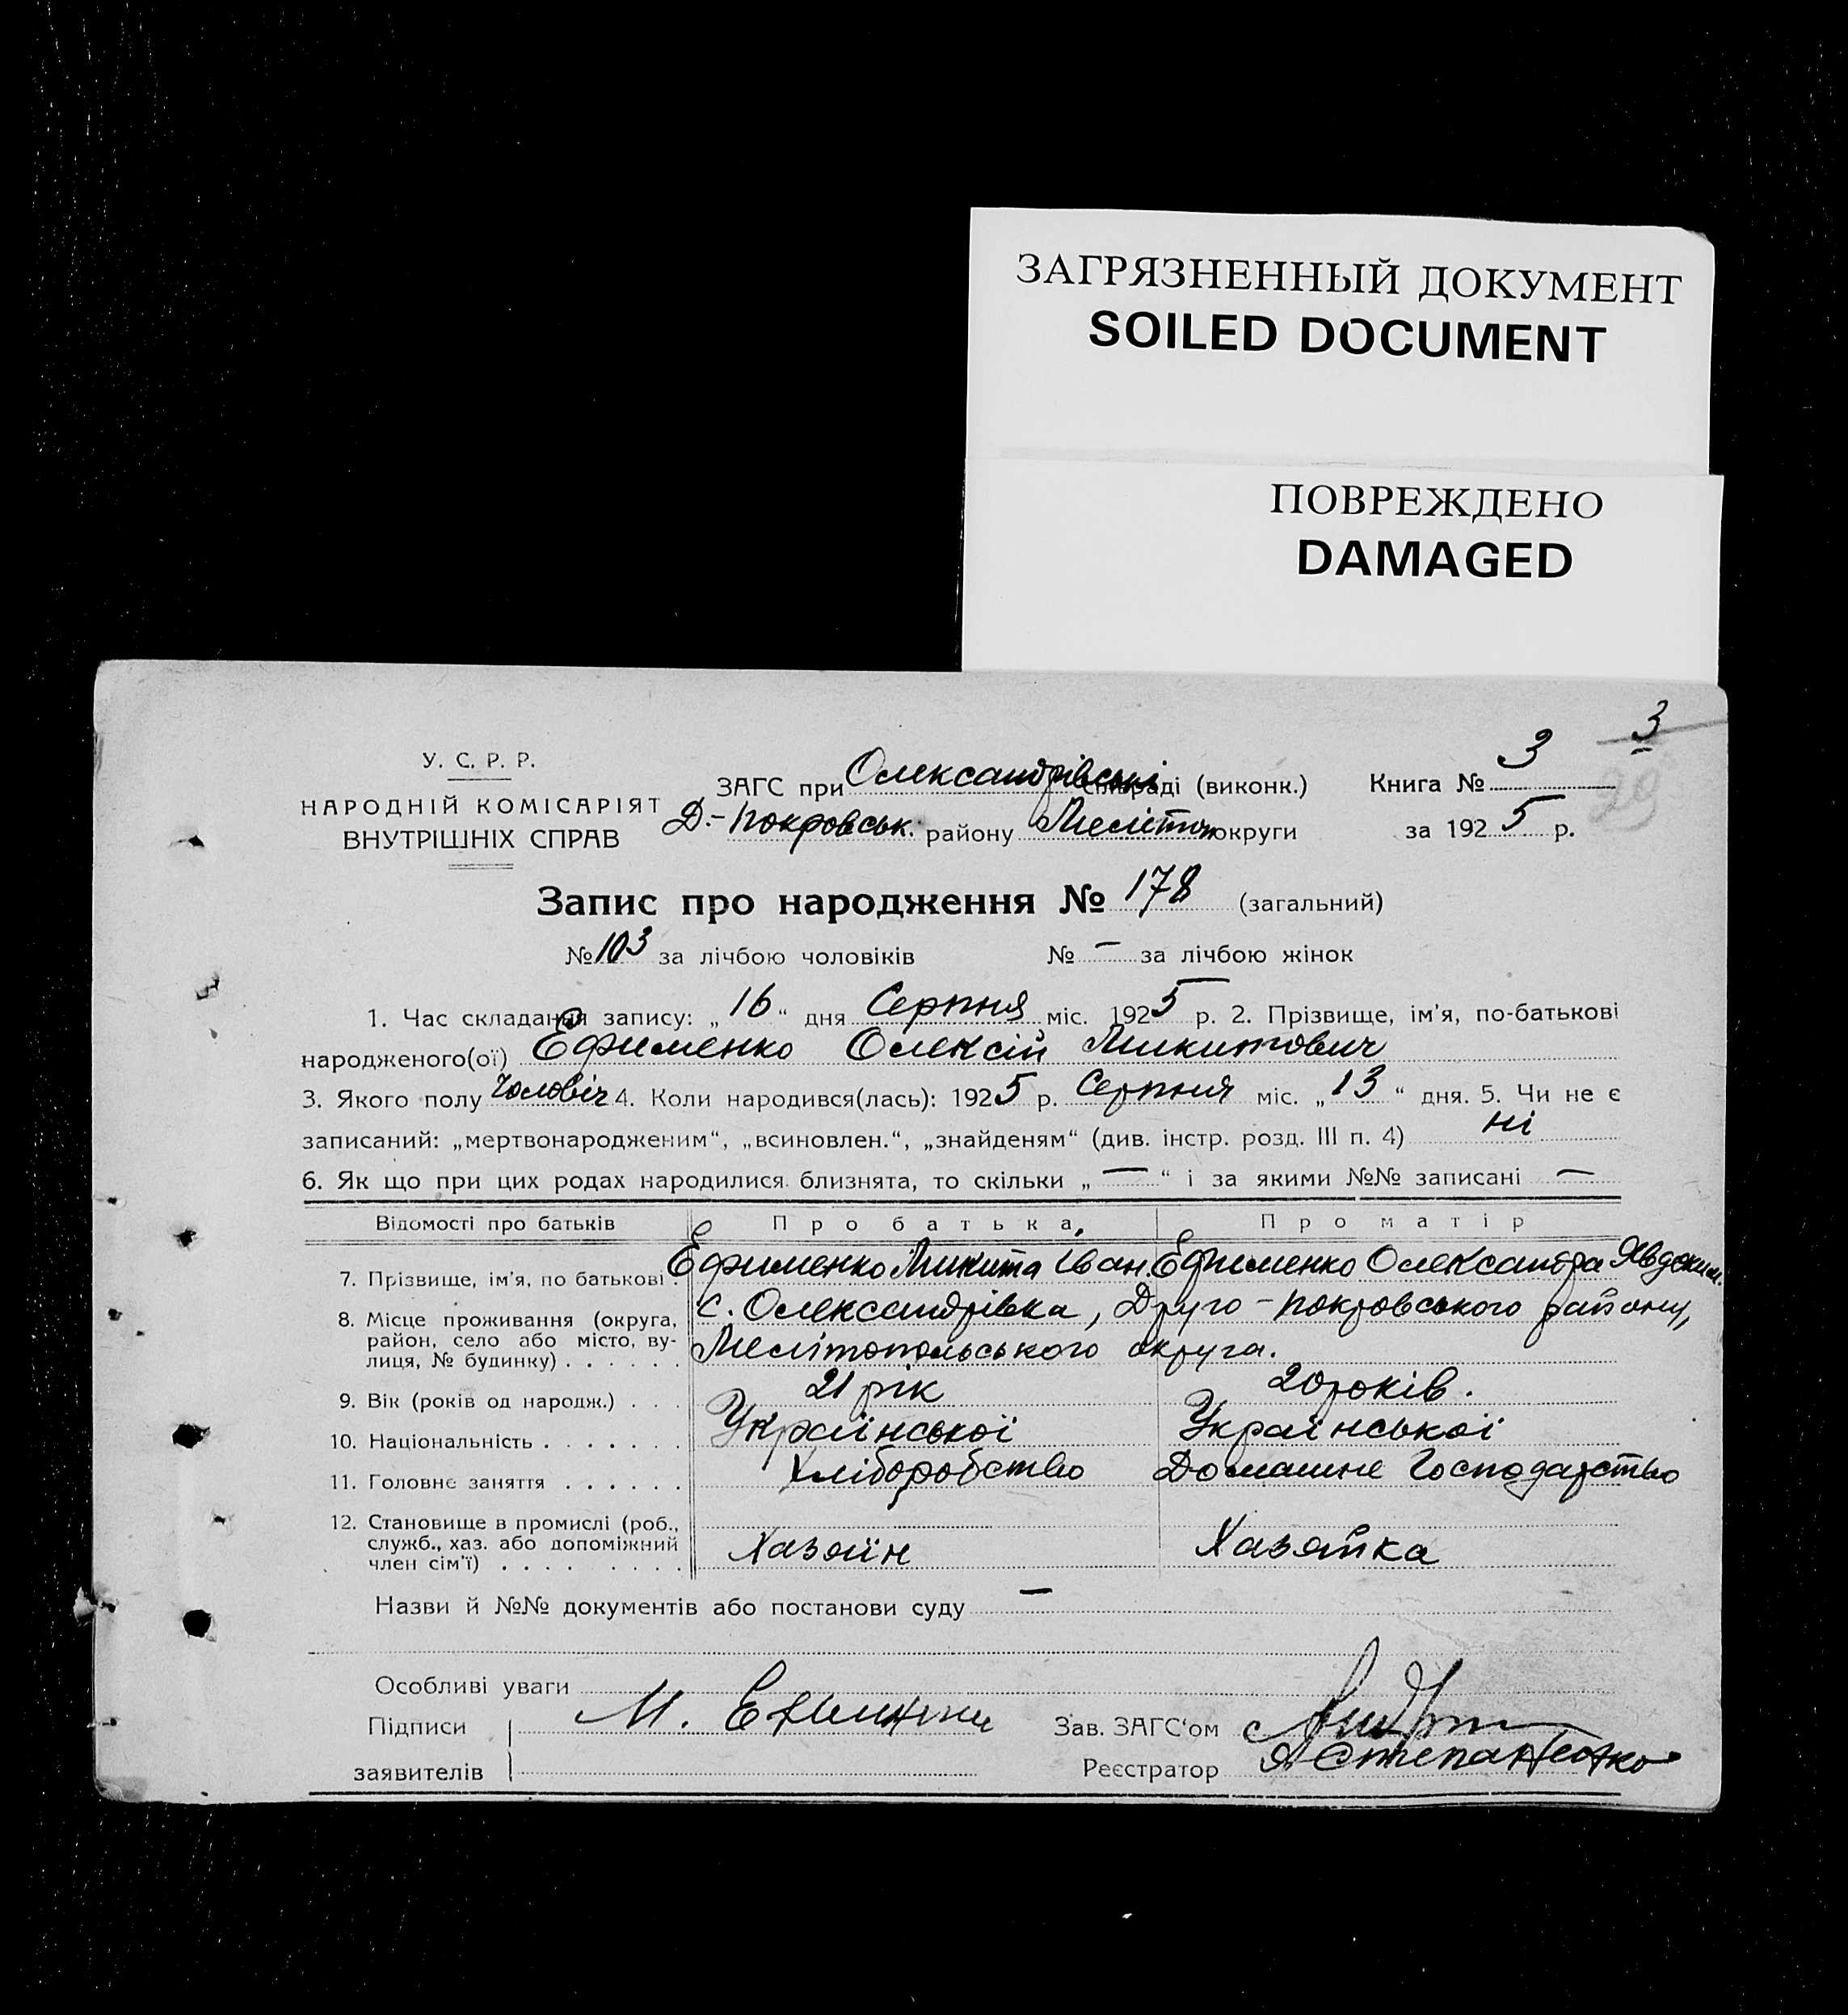 ЗАГРЯЗНЕННЫЙ ДОКУМЕНТ
SOILED DOCUMENT
ПОВРЕЖДЕНО
DAMAGED
3
У. С. Р. Р.
НАРОДНІЙ КОМІСАРІЯТ
ВНУТРІШНІХ СПРАВ
ЗАГС при Олександрівські раді (виконк.) Книга № 3
29
Д.-Покровськ. району Мелітоп округи за 1925 р.
Запис про народження № 178 (загальний)
№ 103 за лічбою чоловіків № — за лічбою жінок
1. Час складання запису: „16“ дня Серпня міс. 1925 р. 2. Прізвище, ім'я, по-батькові
народженого(ої) Ефименко Олексій Микитович
3. Якого полу Чоловіч 4. Коли народився(лась): 1925 р. Серпня міс. „13“ дня. 5. Чи не є
записаний: „мертвонародженим“, „всиновлен.“, „знайденям“ (див. інстр. розд. III п. 4) ні
6. Як що при цих родах народилися близнята, то скільки „—“ і за якими №№ записані —
Відомості про батьків Про батька Про матір
7. Прізвище, ім'я, по батькові Ефименко Микита Іван. Ефименко Олександра Явдоким.
8. Місце проживання (округа, район, село або місто, вулиця, № будинку) . . . . . . с. Олександрівка, Друго-Покровського району,
Мелітопольського округа.
9. Вік (років од народж.) . . . 21 рік 20 років.
10. Національність . . . . . . . Української Української
11. Головне заняття . . . . . . Хліборобство Домашне Господарство
12. Становище в промислі (роб., служб., хаз. або допоміжний член сім'ї) . . . . . . . . Хазяїн Хазяйка
Назви й №№ документів або постанови суду —
Особливі уваги
Підписи М. Зав. ЗАГС‘ом
заявителів Реєстратор Степаненко